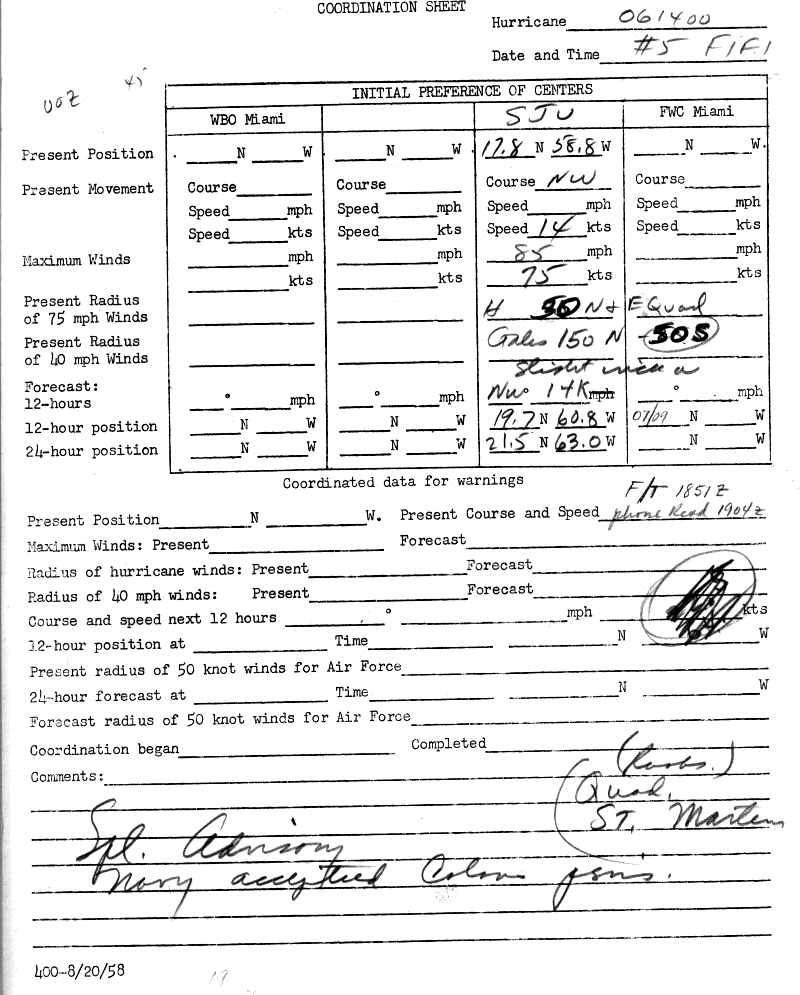 COORDINATION SHEET
Hurricane 061400
Date and Time #5 FIFI
45
00Z
INITIAL PREFERENCE OF CENTERS
WBO Miami SJU FWC Miami
Present Position N W N W 17.8 N 58.8 W N W
Present Movement Course Course Course NW Course
Speed mph Speed mph Speed mph Speed mph
Speed kts Speed kts Speed 14 kts Speed kts
Maximum Winds mph mph 85 mph mph
kts kts 75 kts kts
Present Radius of 75 mph Winds H 50 N + E Quad
Present Radius of 40 mph Winds Gales 150 N - 50S
Slight
Forecast: 12-hours ° mph ° mph NW° 14K mph ° mph
12-hour position N W N W 19.7 N 60.8 W 07/09 N W
24-hour position N W N W 21.5 N 63.0 W N W
Coordinated data for warnings
F/T 1851Z
Present Position N W. Present Course and Speed phone Read 1904Z
Maximum Winds: Present Forecast
Radius of hurricane winds: Present Forecast
Radius of 40 mph winds: Present Forecast
Course and speed next 12 hours ° mph kts
12-hour position at Time N W
Present radius of 50 knot winds for Air Force
24-hour forecast at Time N W
Forecast radius of 50 knot winds for Air Force
Coordination began Completed
Comments:
Quad,
ST. Marten
Spl. Advisory
Navy accepted
400-8/20/58
19